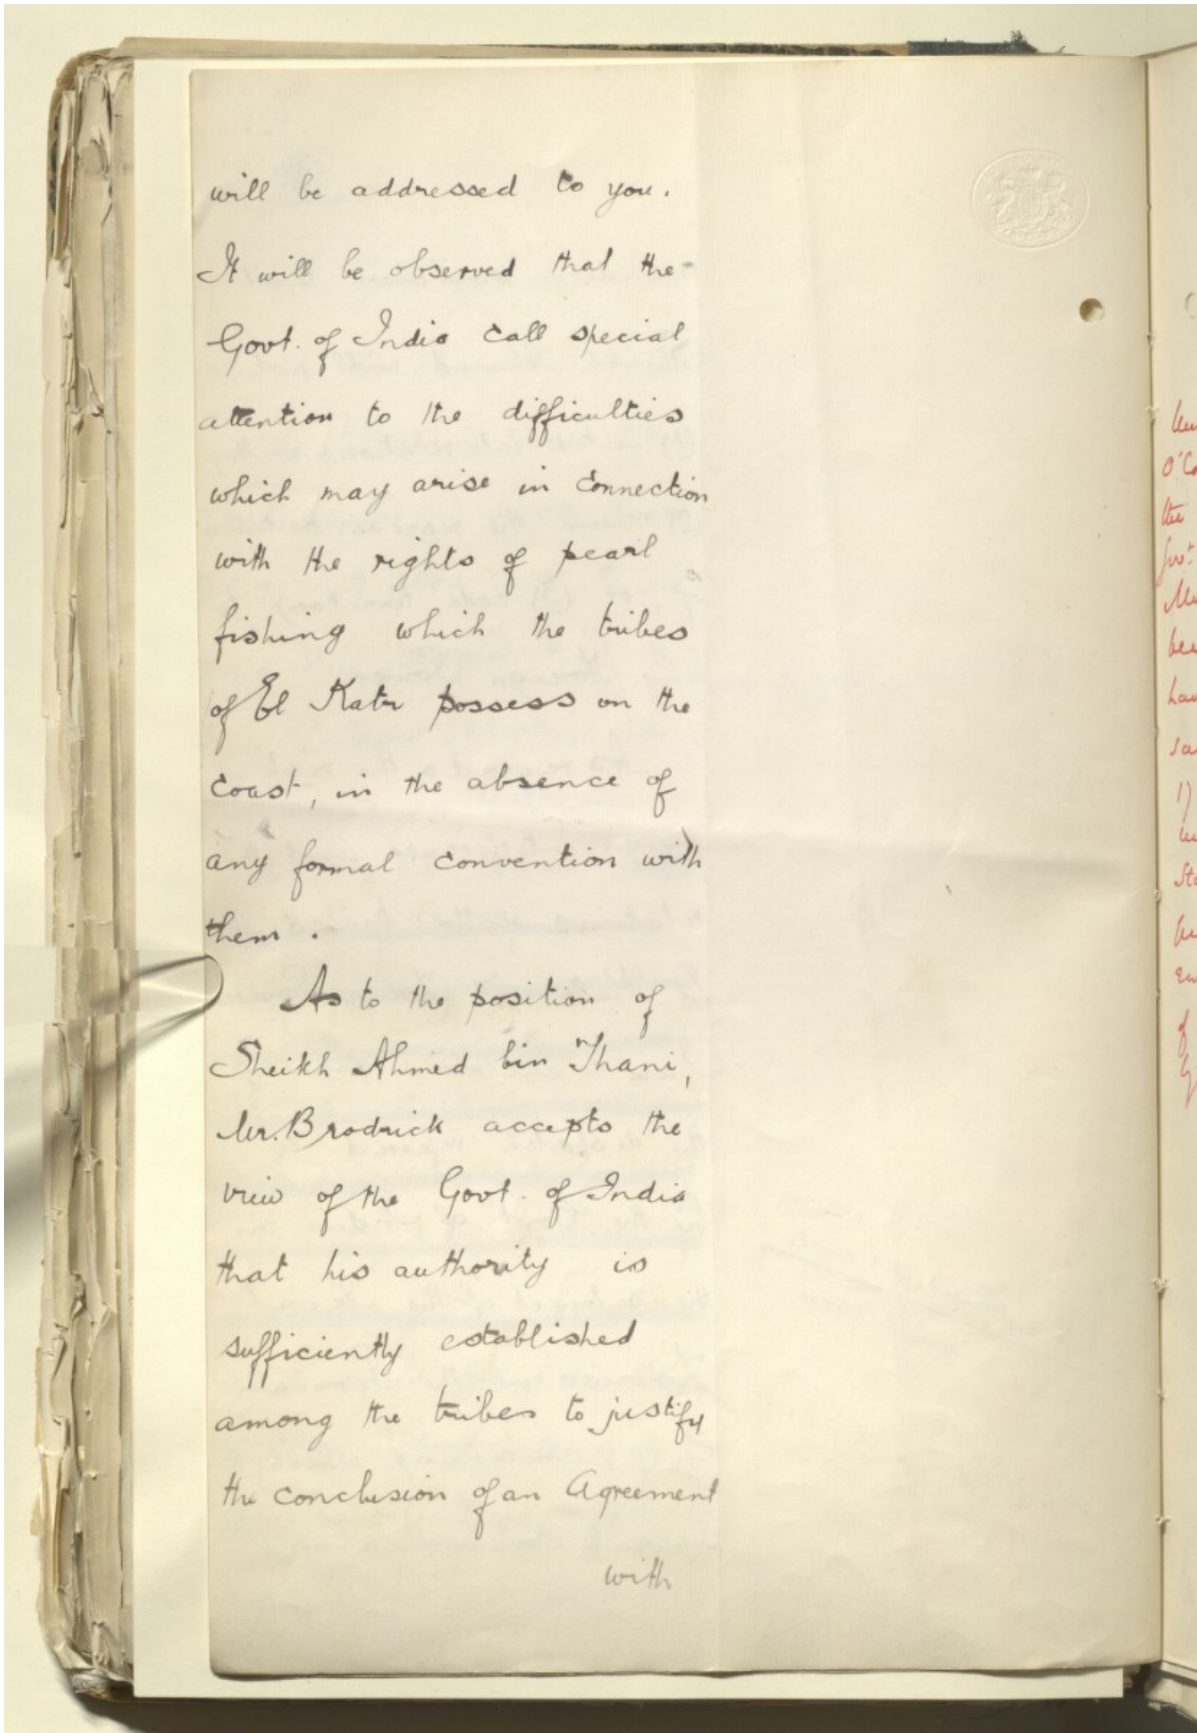 will be addressed to you.
It will be observed that the
Govt. of India call special
attention to the difficulties
which may arise in connection
with the rights of pearl
fishing which the tribes
of El Katr possess on the
coast, in the absence of
any formal convention with
them.
As to the position of
Sheikh Ahmed bin Thani,
Mr. Brodrick accepts the
view of the Govt. of India
that his authority is
sufficiently established
among the tribes to justify
the conclusion of an Agreement
with